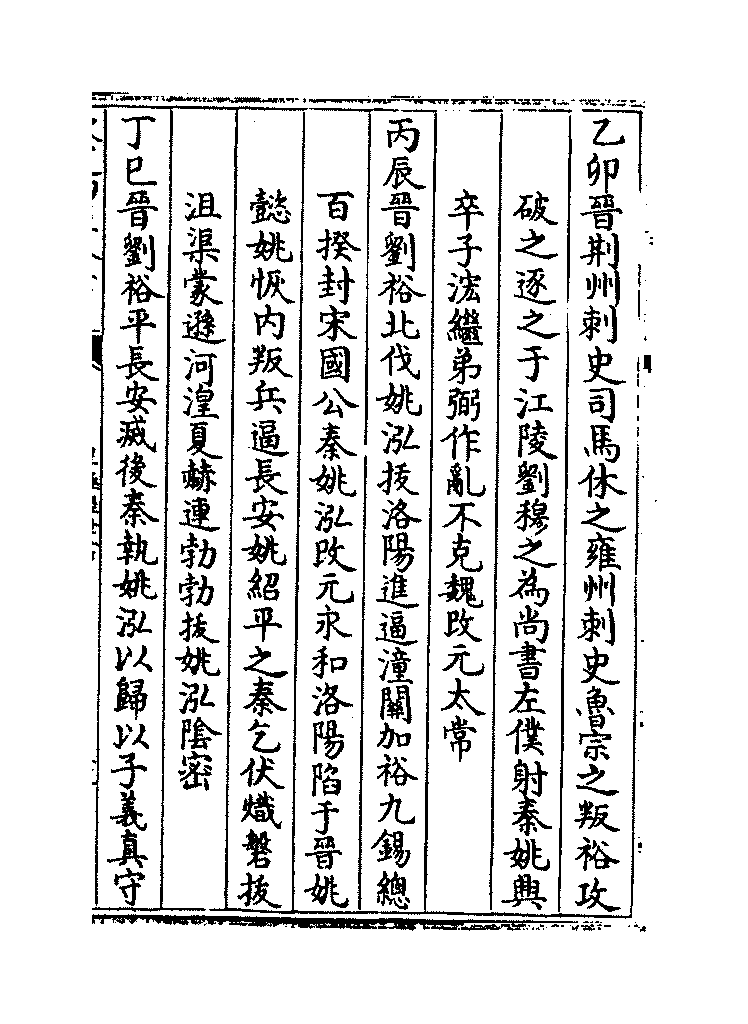 乙卯晉荆州刺史司馬休之雍州刺史魯宗之叛裕攻
破之逐之于江陵劉穆之為尚書左僕射秦姚興
卒子浤繼弟弼作亂不克魏改元太常
丙辰晉劉裕北伐姚泓拔洛陽進逼潼關加裕九錫總
百揆封宋國公秦姚泓改元永和洛陽陷于晉姚
懿姚恢内叛兵逼長安姚紹平之秦乞伏熾磐拔
沮渠蒙遜河湟夏赫連勃勃拔姚泓陰密
丁巳晉劉裕平長安滅後秦執姚泓以歸以子義真守